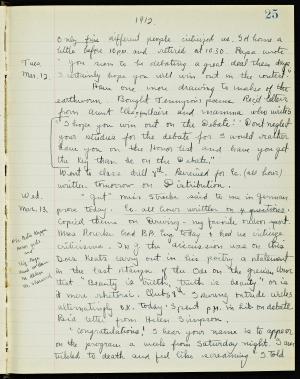 25
1912.
Only five different people criticized us. Id home a
little before 10 pm and retired at 10.30. Papa wrote
Tues. "you seem to be debating a great deal these days.
Mar. 12. I certainly hope you will win out in the contest."
Have one more drawing to make of the
earthworm. Bought Tennyson's poems. Rec'd letters
from Aunt and mamma who writes
"I hope you win out on the Debate. Don't neglect
your studies for the debate for I would rather
have you on the Honor list and have you get
the Key than be on the Debate."
Went to class drill 7th. Received for Ec. (all hour)
written tomorrow on Distribution.
Wed. "gut" miss said to me in german
Mar. 13. prose today. Ec. all hour written on 4 questions.
copied theme on Browning - my favorite
Miss Rourke had B.A. Eng. today & had us criticize
criticisms. In 9 the discussion was on this
Does Keats carry out in his poetry a statement
in the last stanza of the Ode on the grecian Urn
that "Beauty is truth, truth is beauty" or is
it mere rhetoric. Clubs 8th. Swung outside circles
alternatingly O.K. today. Spent p.m. in lib on debate.
Rec'd letter from Helen Simpson.
"Congratulations! I hear your name is to appear
on the program a week from Saturday night. I am
tickled to death and feel like screaming. I told